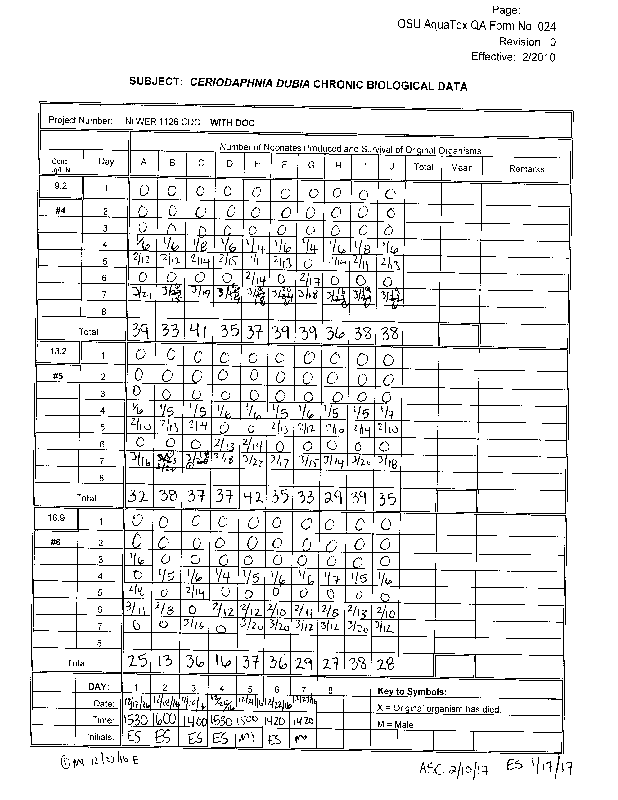 Page:
OSU AquaTox QA Form No. 024
Revision 3
Effective: 2/2010
SUBJECT: CERIODAPHNIA DUBIA CHRONIC BIOLOGICAL DATA
Project Number: NIWER 1126 CDC WITH DOC
Number of Neonates Produced and Survival of Original Organisms
Conc Day A B C D E F G H I J Total Mean Remarks
9.2 1 0 0 0 0 0 0 0 0 0 0
#4 2 0 0 0 0 0 0 0 0 0 0
3 0 0 0 0 0 0 0 0 0 0
4 1/6 1/6 1/8 1/6 1/6 1/4 1/6 1/8 1/6
5 2/12 2/12 2/14 2/15 2/13 0 2/14 2/11 2/13
6 0 0 0 0 2/14 0 2/17 0 0 0
7 3/21 3/19 3/18
8
Total 39 33 41 35 37 39 39 36 38 38
13.2 1 0 0 0 0 0 0 0 0 0 0
#5 2 0 0 0 0 0 0 0 0 0 0
3 0 0 0 0 0 0 0 0 0 0
4 1/6 1/5 1/5 1/6 1/6 1/5 1/6 1/5 1/5 1/7
5 2/10 2/13 2/14 0 0 2/13 2/12 2/10 2/14 2/10
6 0 0 0 2/13 2/14 0 0 0 0 0
7 3/16 3/18 3/22 3/17 3/15 3/14 3/20 3/18
8
Total 32 38 37 37 42 35 33 29 39 35
16.9 1 0 0 0 0 0 0 0 0 0 0
#6 2 0 0 0 0 0 0 0 0 0 0
3 1/6 0 0 0 0 0 0 0 0 0
4 0 1/5 1/6 1/4 1/5 1/6 1/6 1/7 1/5 1/6
5 2/8 0 2/14 0 0 0 0 0 0 0
6 3/11 2/8 0 2/12 2/12 2/10 2/11 2/8 2/13 2/10
7 0 0 3/16 0 3/20 3/20 3/12 3/12 3/20 3/12
8
Total 25 13 36 16 37 36 29 27 38 28
DAY: 1 2 3 4 5 6 7 8 Key to Symbols:
Date: 12/17/16 12/18/16 12/21/16 12/22/16 12/23/16 X = Original organism has died.
Time: 1530 1600 1400 1530 1500 1420 1420 M = Male
Initials: ES ES ES ES
12/23/16 E
ASC 2/10/17 ES 1/17/17